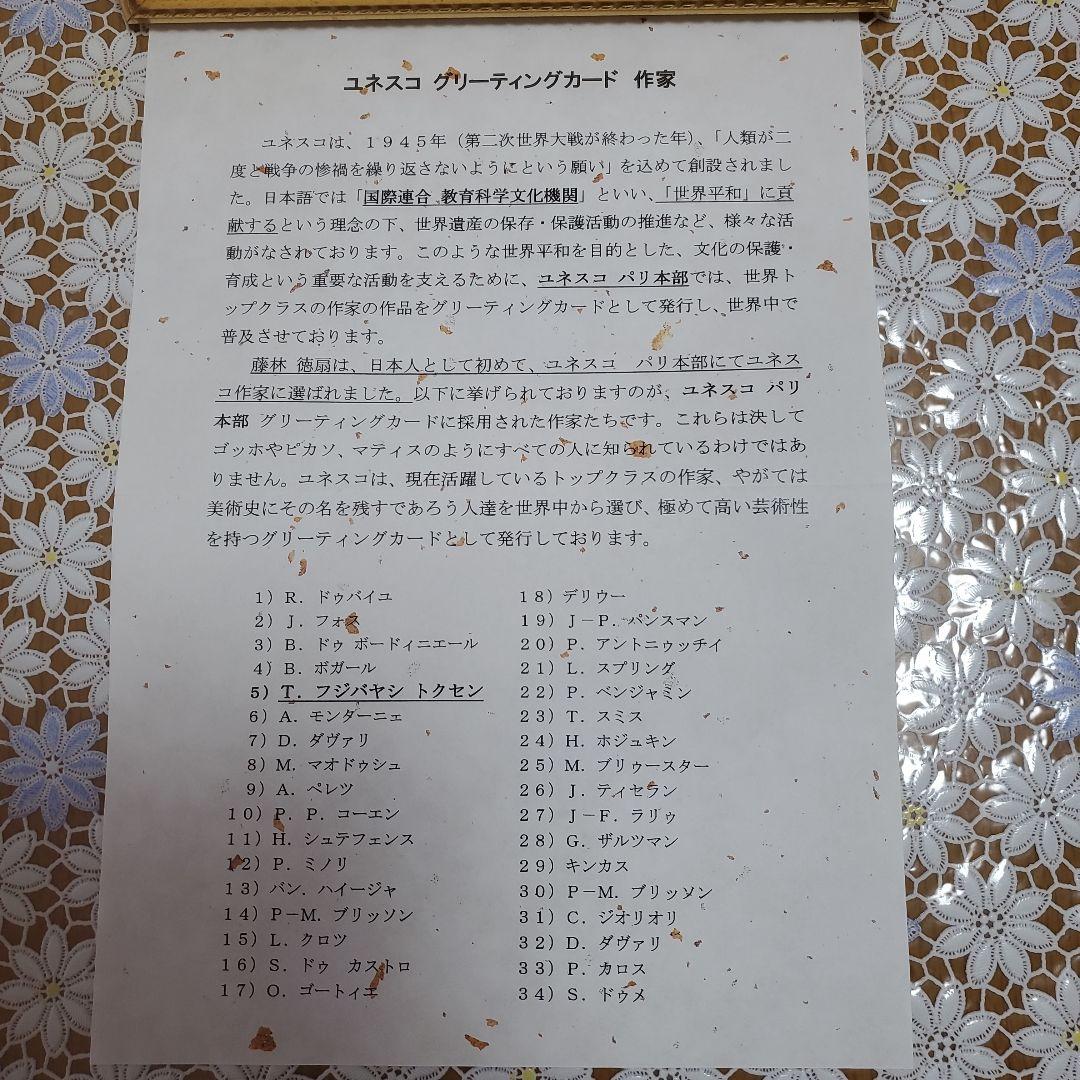 ユネスコ グリーティングカード 作家
ユネスコは、１９４５年（第二次世界大戦が終わった年）、「人類が二
度と戦争の惨禍を繰り返さないようにという願い」を込めて創設されまし
た。日本語では「国際連合 教育科学文化機関」といい、「世界平和」に貢
献するという理念の下、世界遺産の保存・保護活動の推進など、様々な活
動がなされております。このような世界平和を目的とした、文化の保護・
育成という重要な活動を支えるために、ユネスコ パリ本部では、世界ト
ップクラスの作家の作品をグリーティングカードとして発行し、世界中で
普及させております。
藤林 徳扇は、日本人として初めて、ユネスコ パリ本部にてユネス
コ作家に選ばれました。以下に挙げられておりますのが、ユネスコ パリ
本部 グリーティングカードに採用された作家たちです。これらは決して
ゴッホやピカソ、マティスのようにすべての人に知られているわけではあ
りません。ユネスコは、現在活躍しているトップクラスの作家、やがては
美術史にその名を残すであろう人達を世界中から選び、極めて高い芸術性
を持つグリーティングカードとして発行しております。
１）Ｒ．ドゥバイユ
２）Ｊ．フォス
３）Ｂ．ドゥ ボードィニエール
４）Ｂ．ボガール
５）Ｔ．フジバヤシ トクセン
６）Ａ．モンターニェ
７）Ｄ．ダヴァリ
８）Ｍ．マオドゥシュ
９）Ａ．ペレツ
１０）Ｐ．Ｐ．コーエン
１１）Ｈ．シュテフェンス
１２）Ｐ．ミノリ
１３）バン．ハイージャ
１４）Ｐ－Ｍ．ブリッソン
１５）Ｌ．クロツ
１６）Ｓ．ドゥ カストロ
１７）Ｏ．ゴートィエ
１８）デリウー
１９）Ｊ－Ｐ．パンスマン
２０）Ｐ．アントニゥッチイ
２１）Ｌ．スプリンダ
２２）Ｐ．ベンジャミン
２３）Ｔ．スミス
２４）Ｈ．ホジュキン
２５）Ｍ．ブリゥースター
２６）Ｊ．ティセラン
２７）Ｊ－Ｆ．ラリゥ
２８）Ｇ．ザルツマン
２９）キンカス
３０）Ｐ－Ｍ．ブリッソン
３１）Ｃ．ジオリオリ
３２）Ｄ．ダヴァリ
３３）Ｐ．カロス
３４）Ｓ．ドゥメ